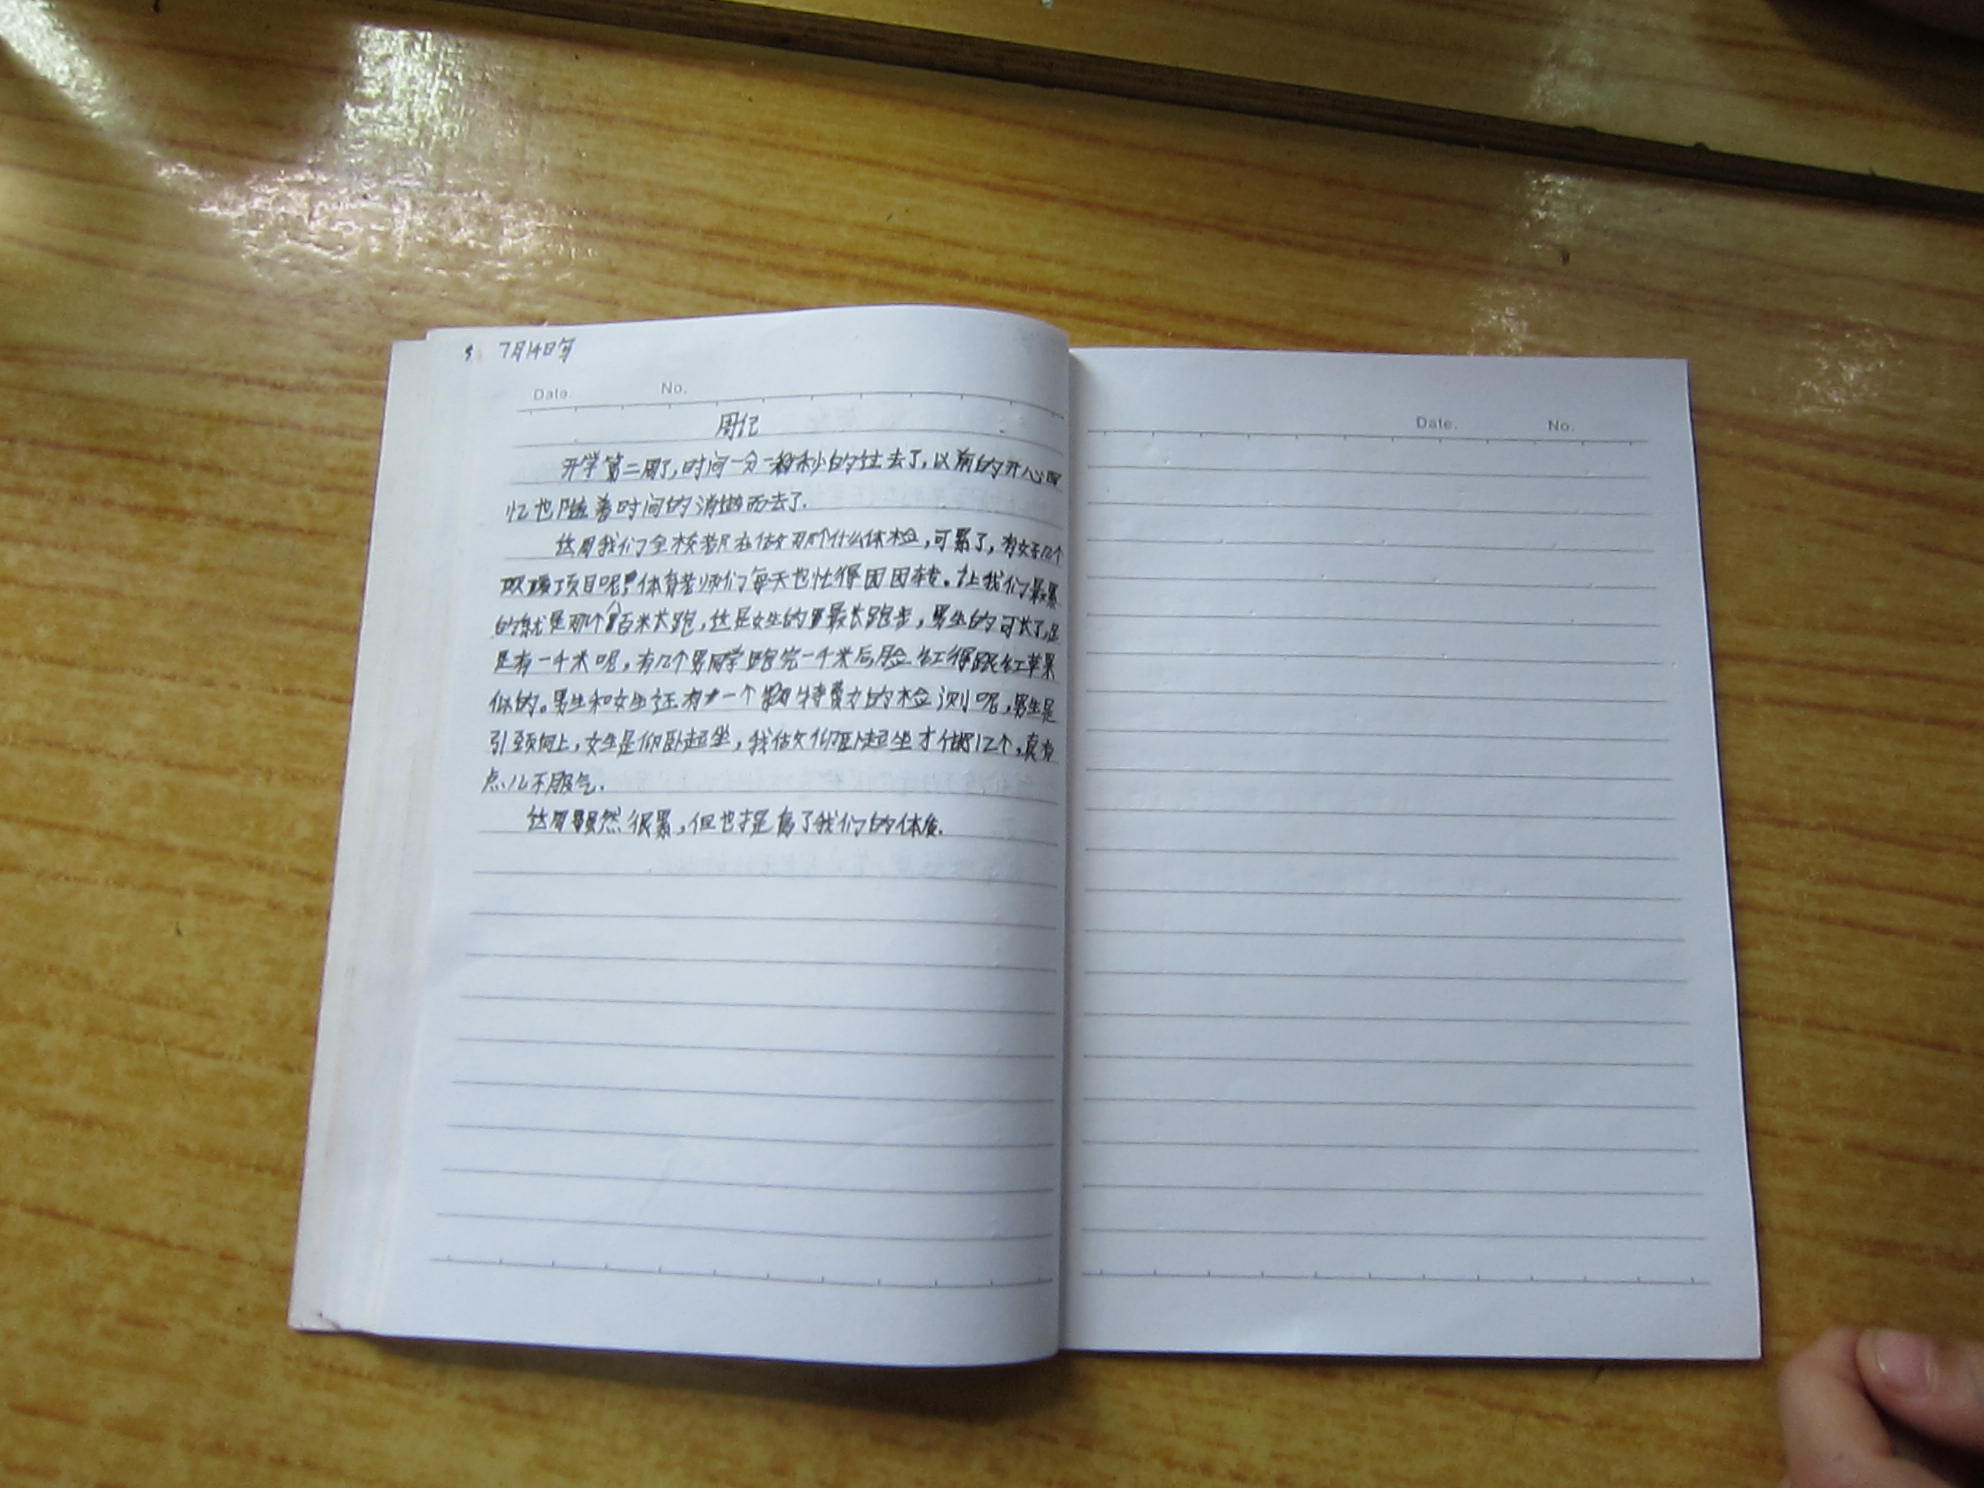 7月14日写
Date.      No.
周记
开学第二周了,时间一分一秒的过去了,以前的开心回
忆也随着时间的消逝而去了.
这周我们全校都在做那个什么体检,可累了,有好几个
项目呢!体育老师们每天也忙得团团转.让我们最累
的就是那个八百米长跑,这是女生的最长跑步,男生的可长了,
是有一千米呢,有几个男同学跑完一千米后脸红得跟红苹果
似的。男生和女生还有一个特费力的检测呢,男生是
引颈向上,女生是仰卧起坐,我做仰卧起坐才做了12个,真有
点儿不服气.
这周虽然很累,但也提高了我们的体质.
Date.      No.